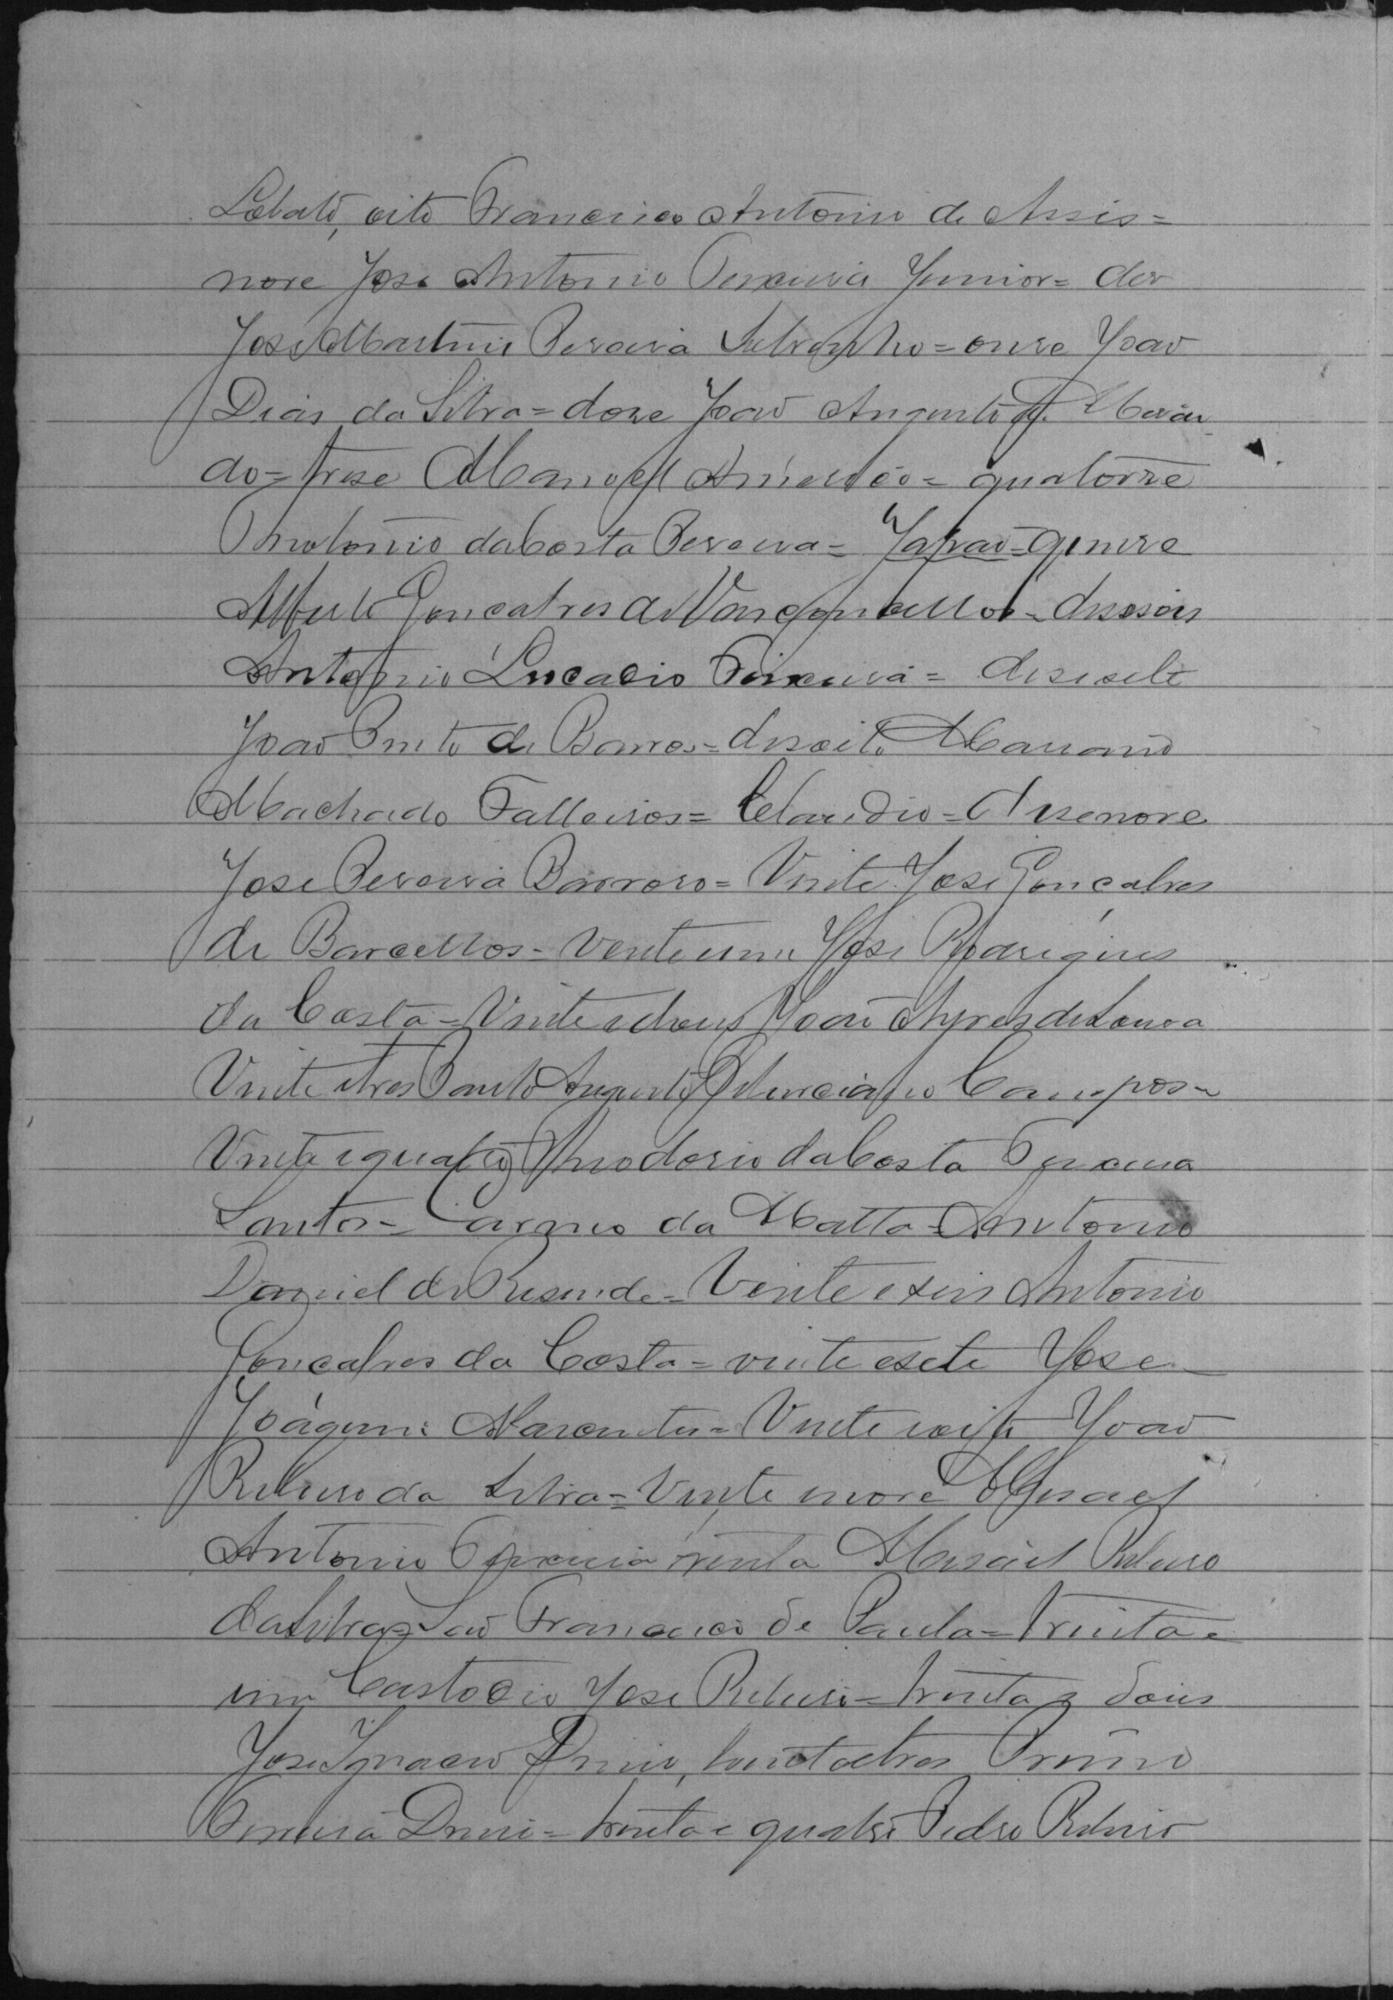 Lobato, oito Francisco Antonio de Assis=
nove José Antonio Teixeira Junior= dez
José Martins Pereira Sobrinho= onze João
Dias da Silva= doze João Augusto de Macê-
do= trese Manoel Amancio= quatorze
Antonio da Costa Pereira= Japão= quinze
Alberto Gonçalves de Vasconcellos= dezeseis
Antonio Lucacio Teixeira= dezesete
João Pinto de Barros= dezoito Marianno
Machado Falleiros= Claudio= dezenove
José Pereira Barroso= Vinte José Gonçalves
de Barcellos= vinte um José Rodrigues
da Costa= Vinte e dous João Ayres de Souza
Vinte e tres Paulo Augusto Campos=
Vinte e quatro Theodorio da Costa Teixeira
Santos= Carmo da Matta= Antonio
Daniel de Resende= Vinte e seis Antonio
Gonçalves da Costa= vinte e sete José
Joaquim = Vinte e oito João
Ribeiro da Silva= Vinte nove Misael
Antonio Teixeira trinta Misael Ribeiro
da Silva= São Francisco de Paula= trinta e
um Custodio José Ribeiro= trinta e dous
José Ignacio Diniz, trinta e tres Firmino
Teixeira Diniz= trinta e quatro Pedro Ribeiro